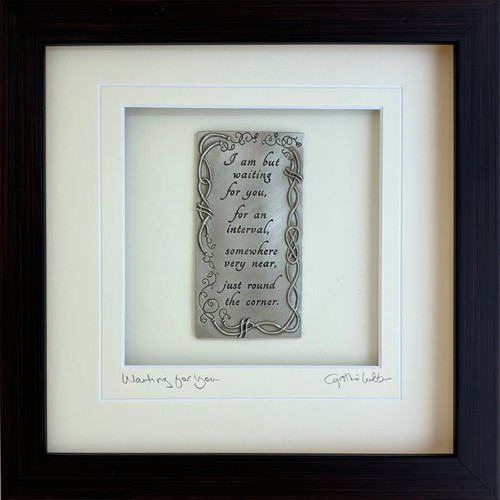 I am but
waiting
for you,
for an
interval,
somewhere
very near,
just round
the corner.
Waiting for You
Cynthia Webb